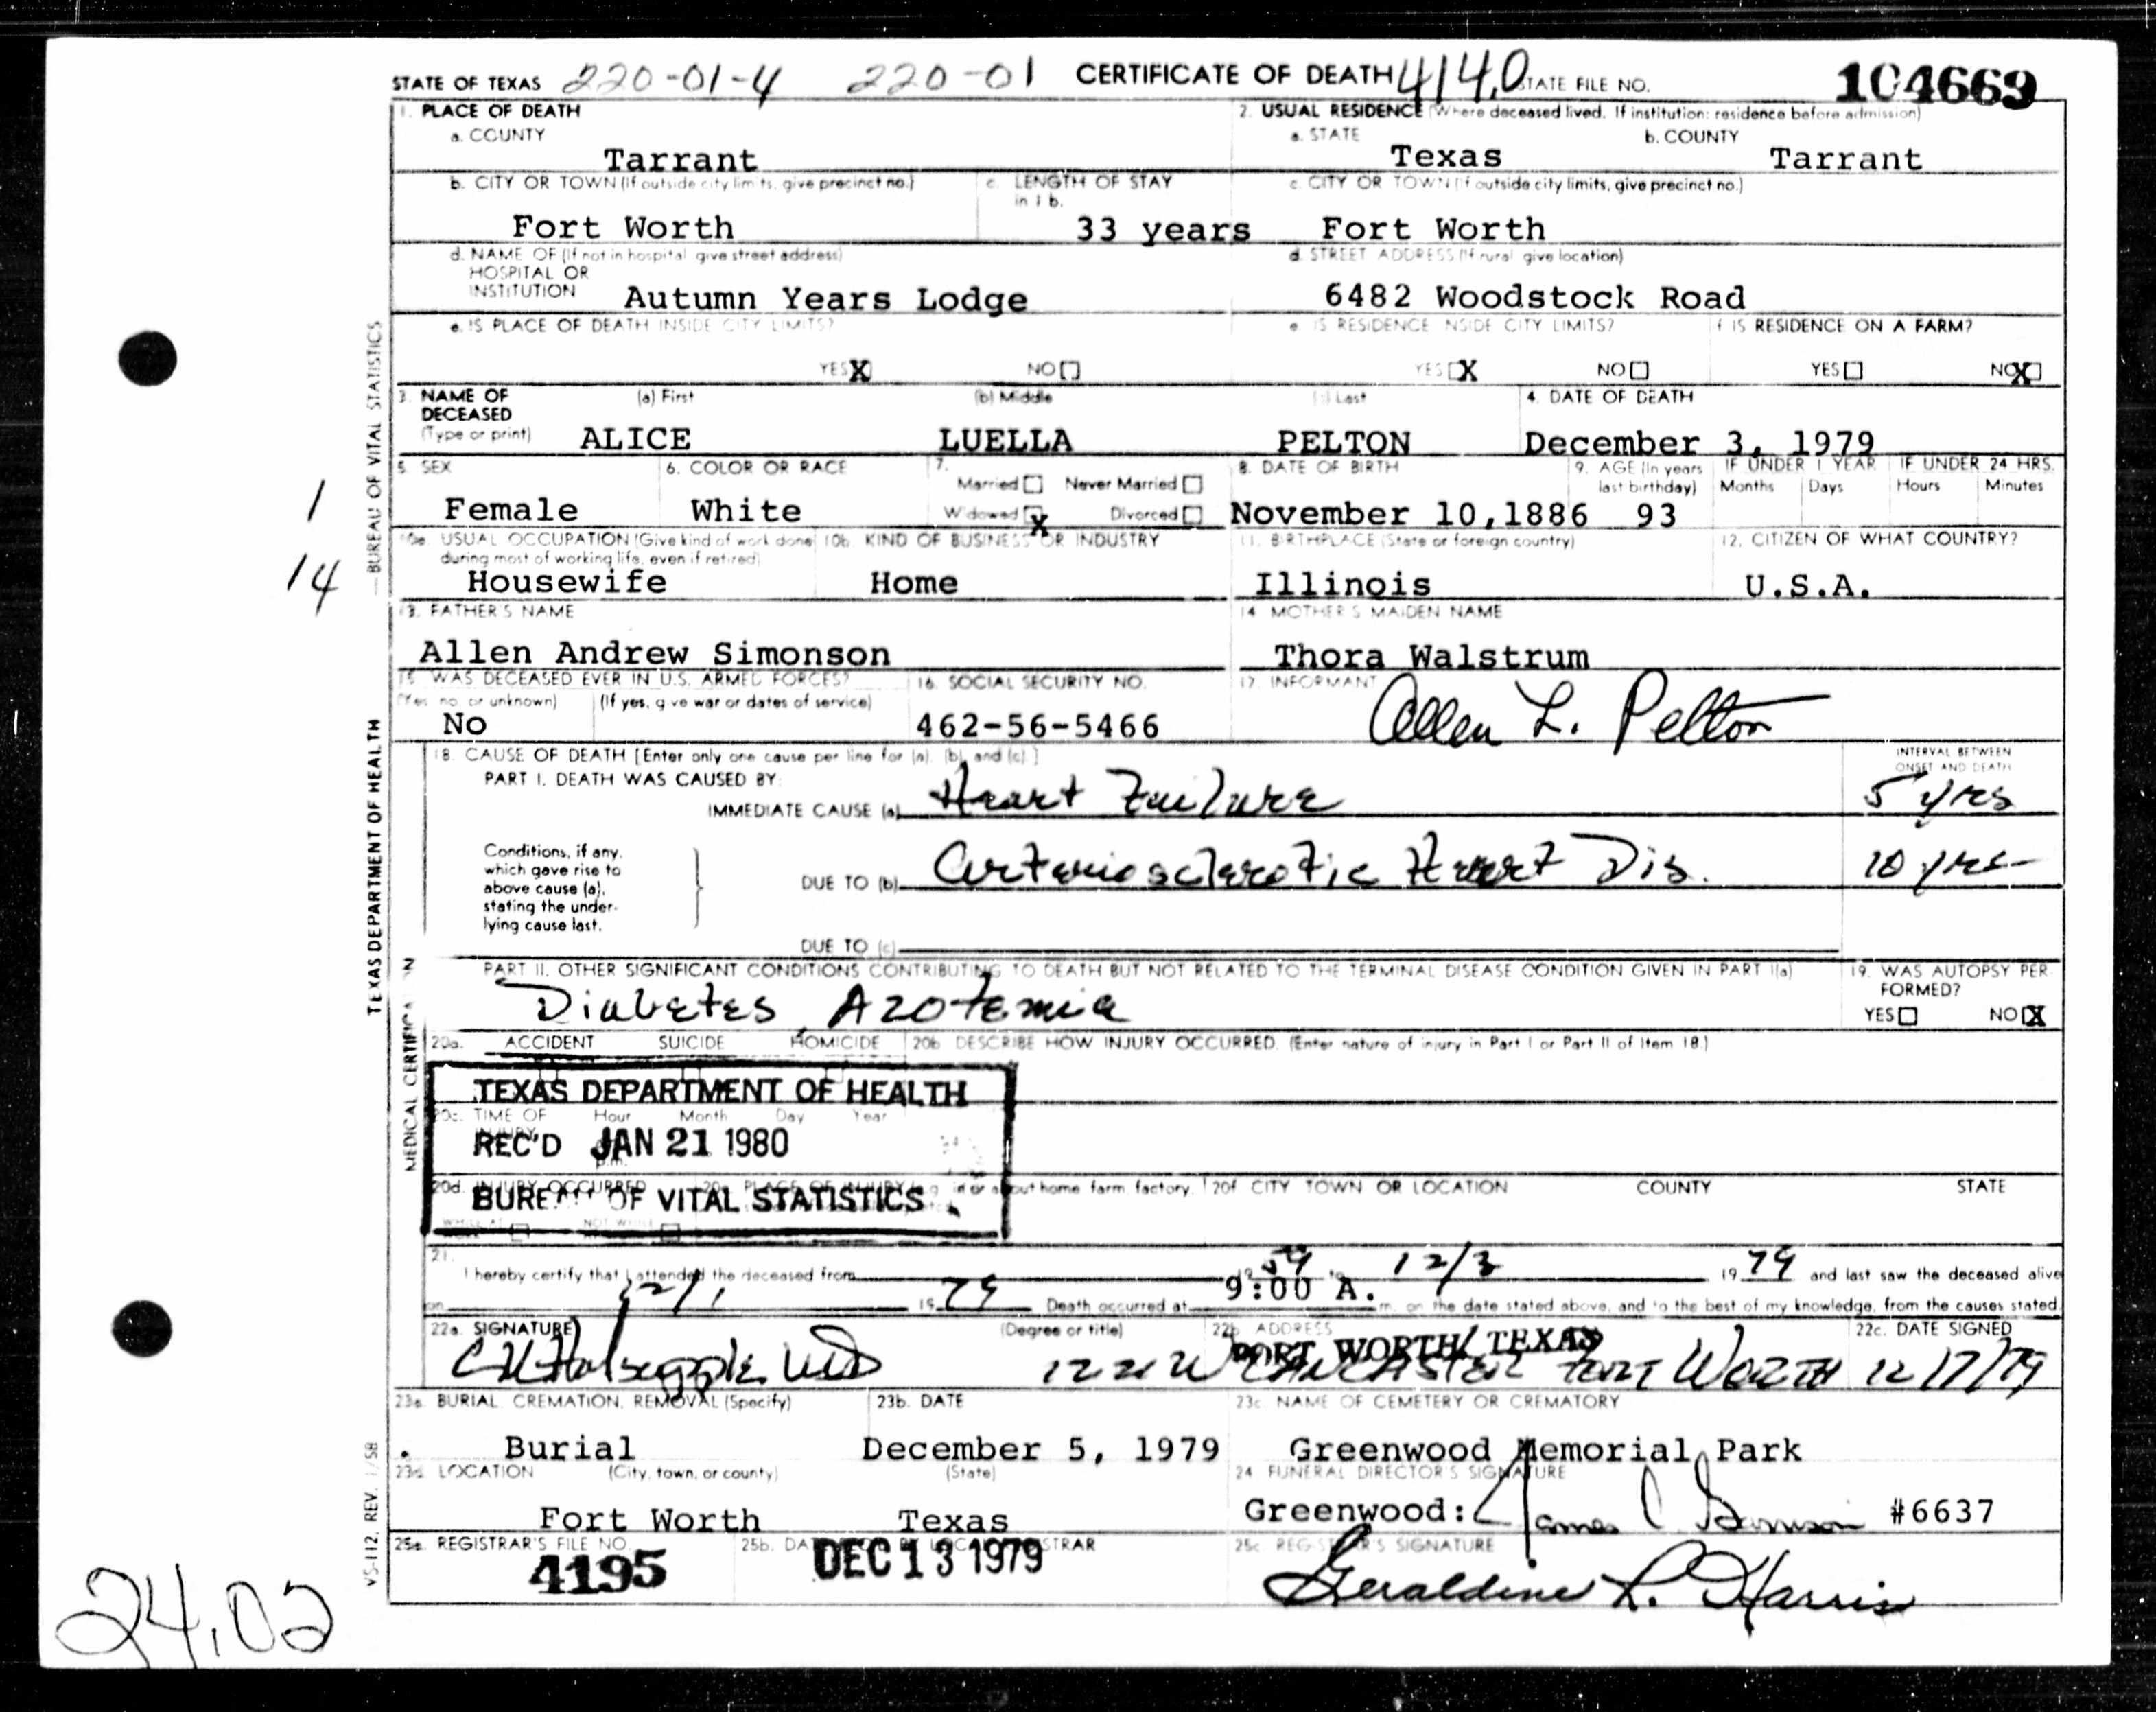 STATE OF TEXAS 220-01-4 220-01 CERTIFICATE OF DEATH 414.0 STATE FILE NO. 104669
1. PLACE OF DEATH 2. USUAL RESIDENCE (Where deceased lived. If institution: residence before admission)
a. COUNTY a. STATE b. COUNTY
Tarrant Texas Tarrant
b. CITY OR TOWN (If outside city limits, give precinct no.) c. LENGTH OF STAY in 1 b. c. CITY OR TOWN (If outside city limits, give precinct no.)
Fort Worth 33 years Fort Worth
d. NAME OF (If not in hospital give street address) d. STREET ADDRESS (If rural give location)
HOSPITAL OR
INSTITUTION Autumn Years Lodge 6482 Woodstock Road
e. IS PLACE OF DEATH INSIDE CITY LIMITS? e IS RESIDENCE INSIDE CITY LIMITS? f IS RESIDENCE ON A FARM?
YES X NO YES X NO YES NO X
3. NAME OF DECEASED (a) First (b) Middle (c) Last 4. DATE OF DEATH
(Type or print) ALICE LUELLA PELTON December 3, 1979
5. SEX 6. COLOR OR RACE 7. 8. DATE OF BIRTH 9. AGE (In years last birthday) IF UNDER 1 YEAR IF UNDER 24 HRS.
Married Never Married Months Days Hours Minutes
Female White Widowed X Divorced November 10,1886 93
10a. USUAL OCCUPATION (Give kind of work done during most of working life, even if retired) 10b. KIND OF BUSINESS OR INDUSTRY 11. BIRTHPLACE (State or foreign country) 12. CITIZEN OF WHAT COUNTRY?
Housewife Home Illinois U.S.A.
13. FATHER'S NAME 14 MOTHER'S MAIDEN NAME
Allen Andrew Simonson Thora Walstrum
15 WAS DECEASED EVER IN U.S. ARMED FORCES? 16. SOCIAL SECURITY NO. 17 INFORMANT
(Yes no or unknown) (If yes, give war or dates of service)
No 462-56-5466 Allen L. Pelton
18. CAUSE OF DEATH [Enter only one cause per line for (a), (b), and (c).] INTERVAL BETWEEN ONSET AND DEATH
PART I. DEATH WAS CAUSED BY:
IMMEDIATE CAUSE (a) Heart Failure 5 yrs
Conditions, if any,
which gave rise to
above cause (a),
stating the under-
lying cause last.
DUE TO (b) Arteriosclerotic Heart Dis. 10 yrs
DUE TO (c)
PART II. OTHER SIGNIFICANT CONDITIONS CONTRIBUTING TO DEATH BUT NOT RELATED TO THE TERMINAL DISEASE CONDITION GIVEN IN PART I(a) 19. WAS AUTOPSY PERFORMED?
Diabetes, Azotemia YES NO X
20a. ACCIDENT SUICIDE HOMICIDE 20b DESCRIBE HOW INJURY OCCURRED. (Enter nature of injury in Part I or Part II of Item 18.)
TEXAS DEPARTMENT OF HEALTH
20c. TIME OF INJURY Hour Month Day Year
REC'D JAN 21 1980
p.m.
20d. INJURY OCCURRED in or about home farm factory, 20f CITY TOWN OR LOCATION COUNTY STATE
BUREAU OF VITAL STATISTICS
WHILE AT NOT WHILE
21.
I hereby certify that I attended the deceased from 19 59 to 12/3 19 79 and last saw the deceased alive
on 12/1 19 79 Death occurred at 9:00 A. m. on the date stated above, and to the best of my knowledge, from the causes stated.
22a. SIGNATURE (Degree or title) 22b ADDRESS 22c. DATE SIGNED
FORT WORTH, TEXAS
MD 1221 W LANCASTER FORT WORTH 12/7/79
23a. BURIAL CREMATION, REMOVAL (Specify) 23b. DATE 23c NAME OF CEMETERY OR CREMATORY
Burial December 5, 1979 Greenwood Memorial Park
23d. LOCATION (City, town, or county) (State) 24 FUNERAL DIRECTOR'S SIGNATURE
Fort Worth Texas Greenwood: James #6637
25a. REGISTRAR'S FILE NO. 25b. 25c REGISTRAR'S SIGNATURE
4195 DEC 13 1979 Geraldine L. Harris
1
14
24.02
BUREAU OF VITAL STATISTICS
TEXAS DEPARTMENT OF HEALTH
MEDICAL CERTIFICATION
VS-112, REV. 1/58